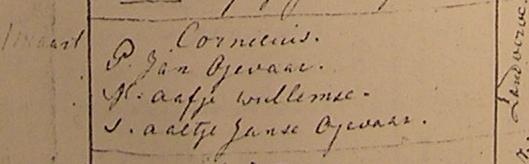 Maart
Cornelius.
P. Jan Ojevaar.
M. aafje willemse.
S. aaltje Janse Ojevaar.